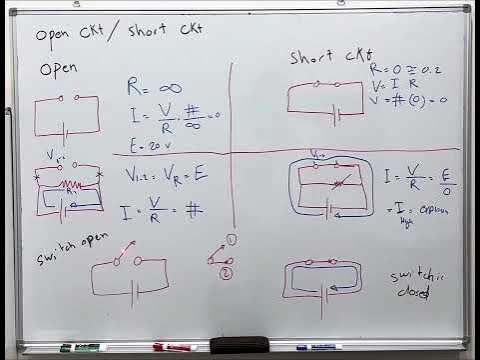 open ckt / short ckt
open
R = ∞
I = V/R · #/∞ = 0
E = 20 v
V1-2
R1
V1-2 = VR = E
I = V/R = #
switch open
①
②
short ckt
R = 0 ≅ 0.2
V = I R
V = # (0) = 0
V1-2
I = V/R = E/0
= I
High
switch is
closed